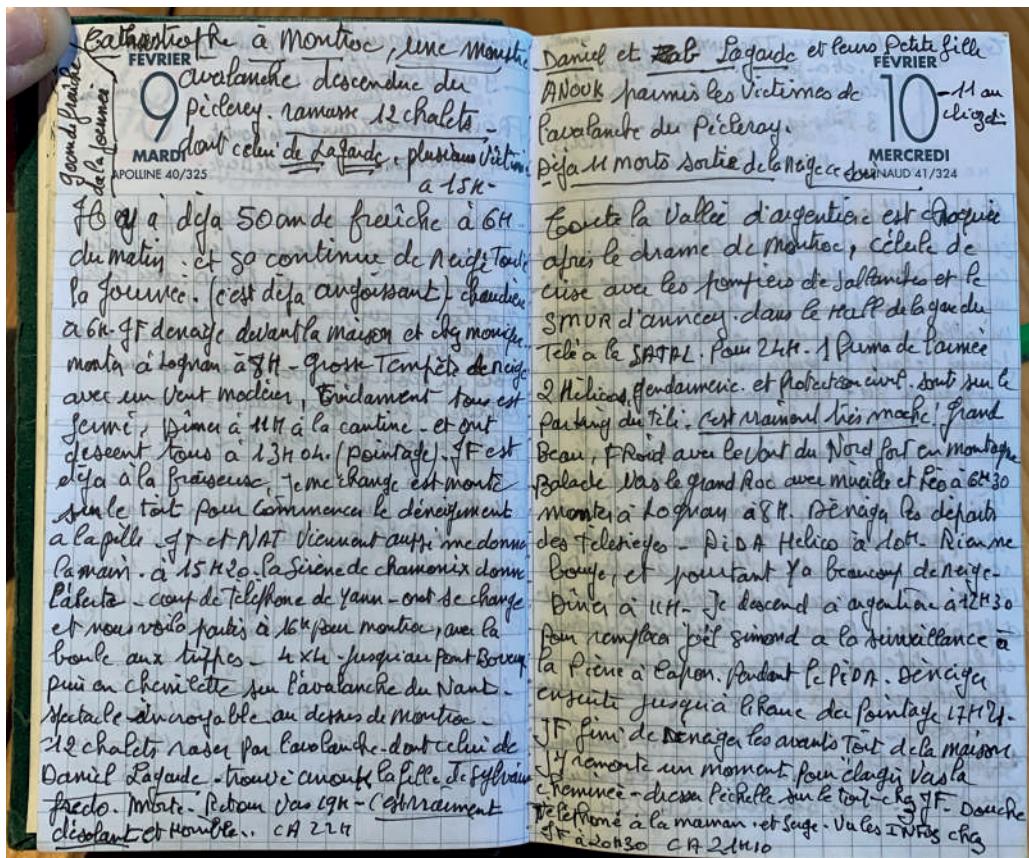 Catastrophe à Montroc, une monstre
FÉVRIER
9
MARDI
APOLLINE 40/325
90cm de fraîche
de la journée
avalanche descendue du
Pècleray. ramasse 12 chalets -
dont celui de Lagarde, plusieurs Victime
a 15H-
Il y à déja 50 cm de freiche à 6H
du matin. et sa continue de neigé Toute
la journée. (c'est déja angoissant) chaudière
a 6H- JF denage devant la maison et chg monique
monter à Lognan à 8H - Grosse Tempête de neige
avec un Vent modérer, Evidament tous est
fermé, Dîner à 11H à la cantine - et ont
descent tous à 13H04. (pointage). JF est
déja à la fraiseuse, Je me change est monte
sur le toit pour commencer le déneigement
a la pelle. JF et NAT Viennent aussi me donne
la main. à 15H20. la Sirène de chamonix donne
l'alerte - coup de téléphone de Yann - ont se change
et nous voila partis à 16H pour montroc, avec la
boule aux trippes - 4x4 - jusqu'au Pont
puis en chenilette sur l'avalanche du Nant -
spectacle incroyable au dessus de montroc -
12 chalets raser par l'avalanche - dont celui de
Daniel Lagarde - trouvé anouk la fille de Sylvain
fredo. Morte. Retour Vers 19H - C'est vraiment
désolant et Horrible.. CA 22H
Daniel et Zab Lagarde et leurs Petite fille
FÉVRIER
10
MERCREDI
ARNAUD 41/324
-11 au
ANOUK parmis les Victimes de
l'avalanche du Pècleray.
Déja 11 morts sortie de la neige ce soir
Toute la Vallée d'argentière est choquée
après le drame de Montroc, célule de
crise avec les pompiers de Sallanches et le
SMUR d'annecy. dans le Hall de la gare du
Télé a la SATAL. Pour 24H. 1 Puma de l'armée
2 Hélicos, gendarmerie. et Protection civil. sont sur le
parking du Télé. C'est vraiment très moche! Grand
Beau, FRoid avec le Vent du Nord fort en montagne
Balade Vers le grand Roc avec mireille et Léo à 6H30
monter à Lognan a 8H. Dénager les départs
des Télésieges - PiDA Hélico à 10H. Rien ne
bouge, et pourtant Y a beaucoup de neige -
Dîner à 11H - Je descend à argentière à 12H30
pour remplacer joël simond a la surveillance à
la Pierre à . Pendant le PiDA. Déneiger
ensuite jusqu'à l'heure du pointage 17H21-
JF fini de Dénager les avants Toit de la maison
J'y remonte un moment pour élargir Vers la
cheminée - dresser l'échelle sur le toit - chg JF - Douche
Téléphoné à la maman. et Serge. Vu les INFOS chg
JF à 20H30 CA 21H10